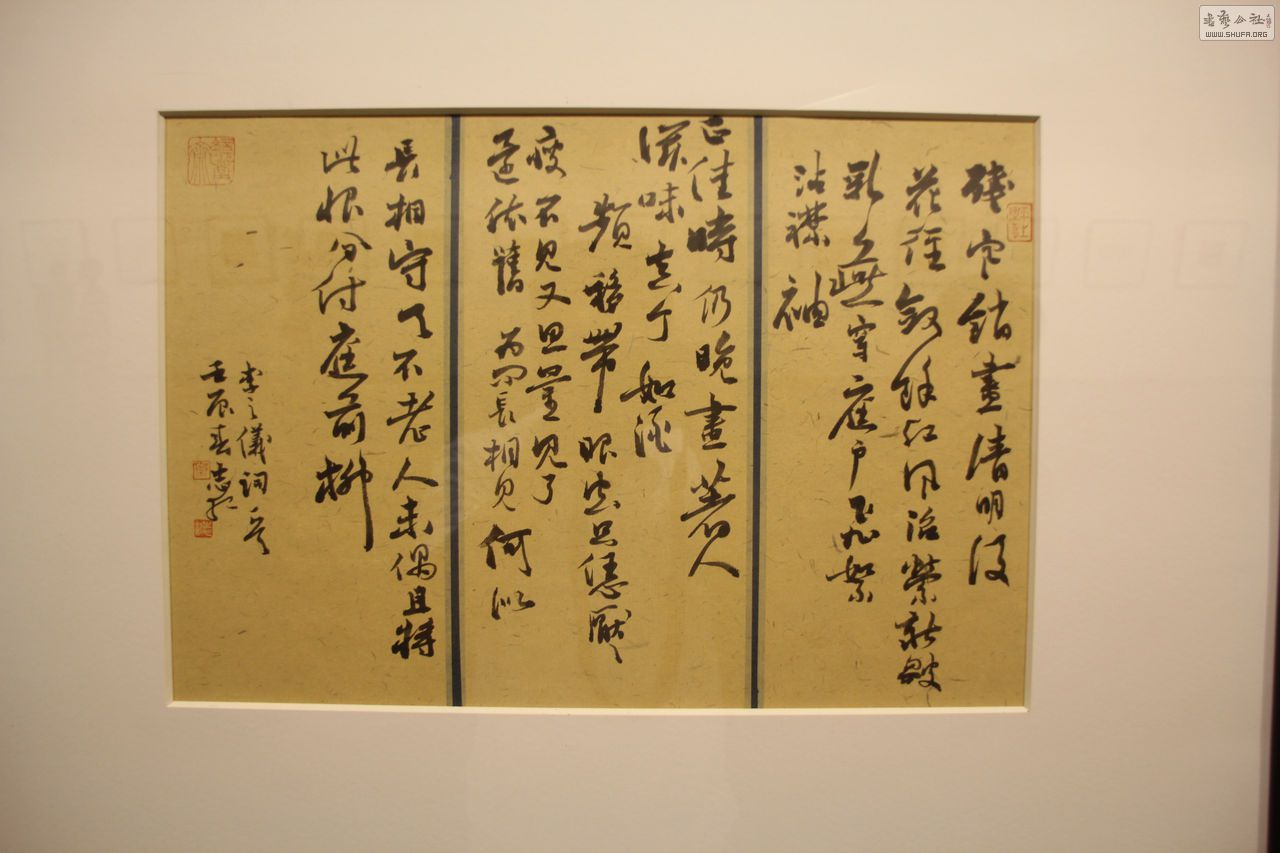 殘寒銷盡清明後
花徑斂餘紅風沼縈新皺
乳燕穿庭戶飛絮
沾襟袖
正佳時仍晚晝著人
滋味真个如酒
頻移帶眼空只恁厭〻
瘦不見又思量見了
還依舊為問長相見何似
長相守天不老人未偶且將
此恨分付庭前柳
李之儀詞
壬辰春志
書藝公社
WWW.SHUFA.ORG